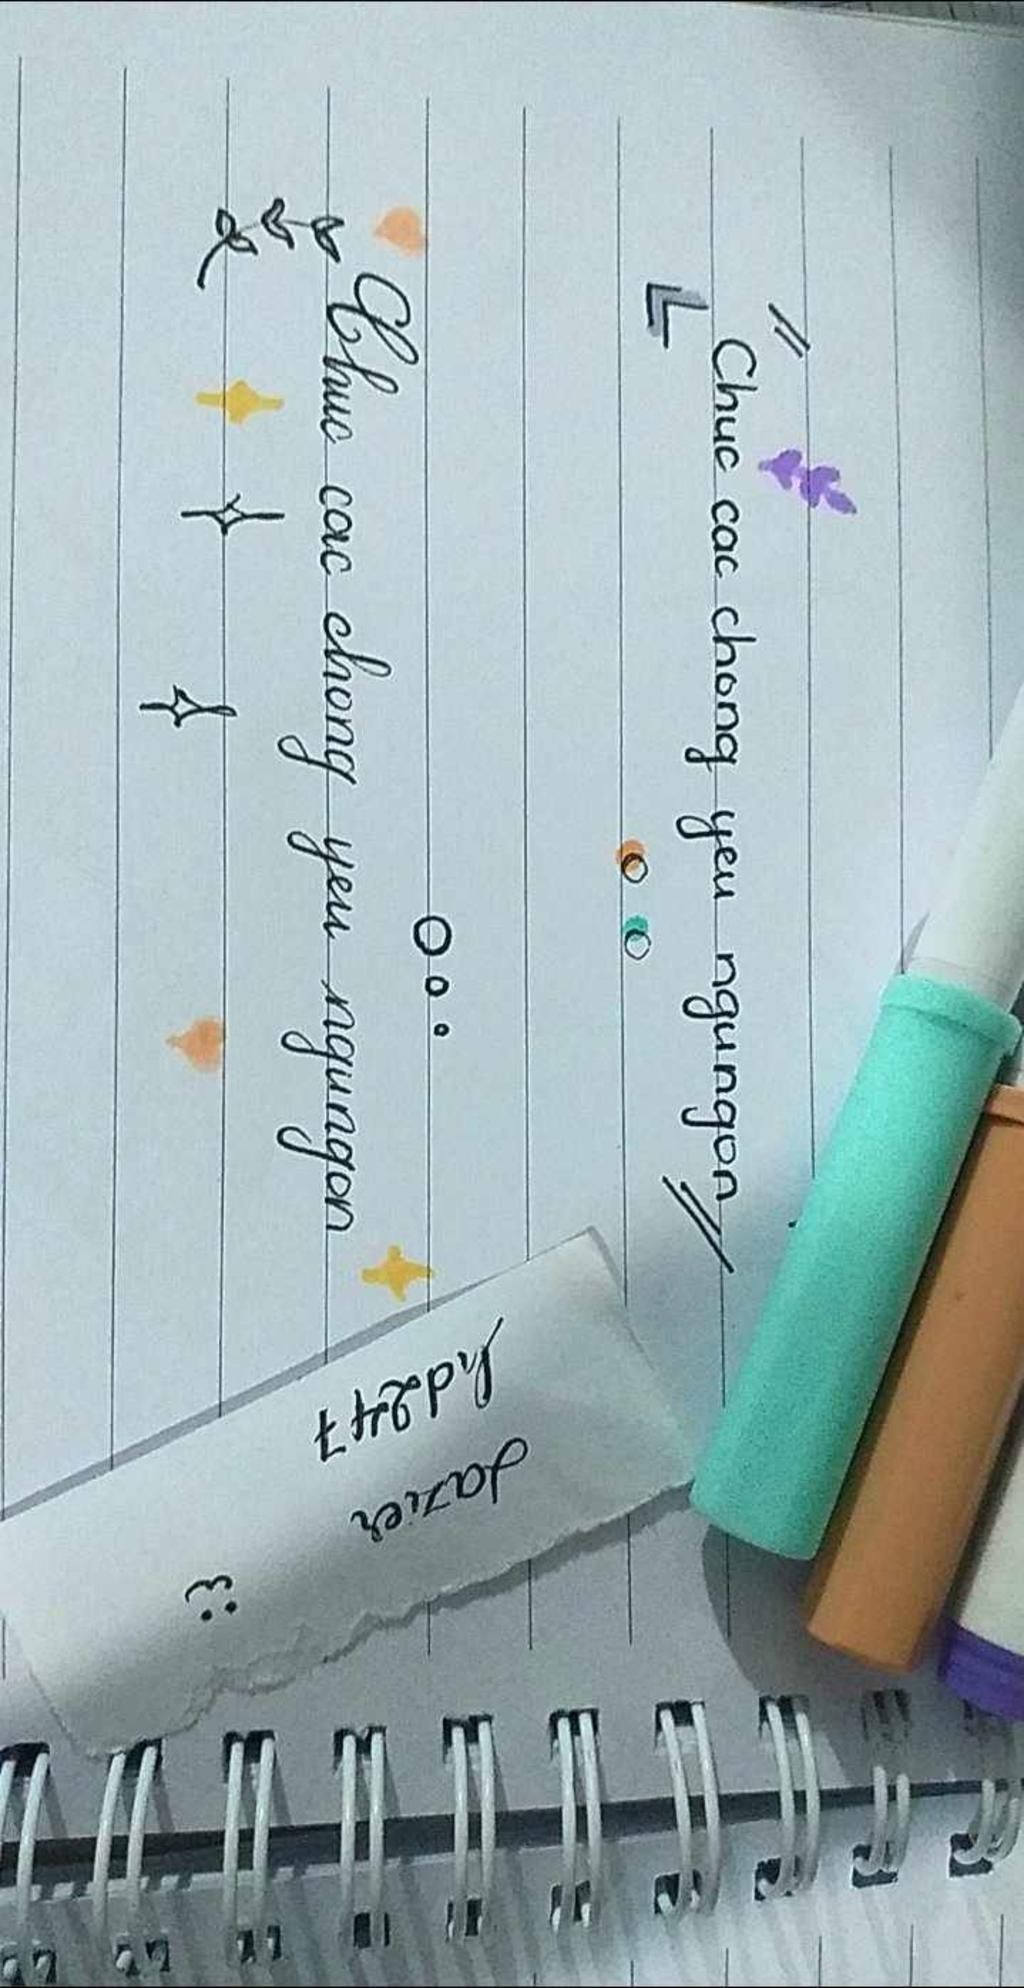 Chuc cac chong yeu ngungon
Chuc cac chong yeu ngungon
hd247
Jazier
:3